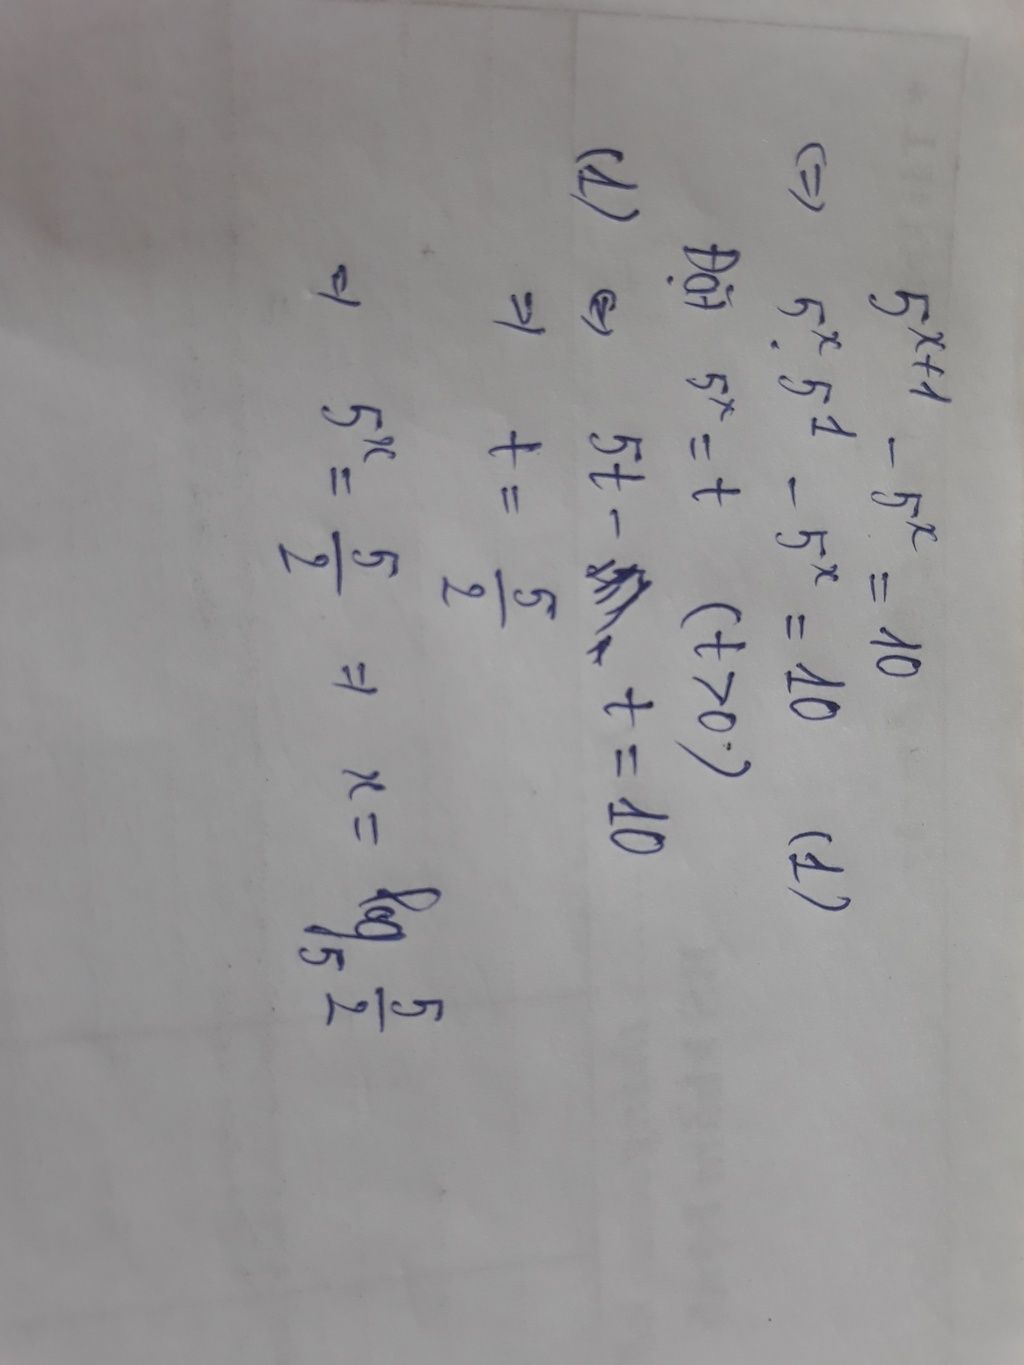 5^{x+1} - 5^x = 10
(=) 5^x . 5^1 - 5^x = 10 (1)
Đặt 5^x = t (t > 0)
(1) (=) 5t - t = 10
=) t = \frac{5}{2}
=) 5^x = \frac{5}{2} =) x = log_5 \frac{5}{2}